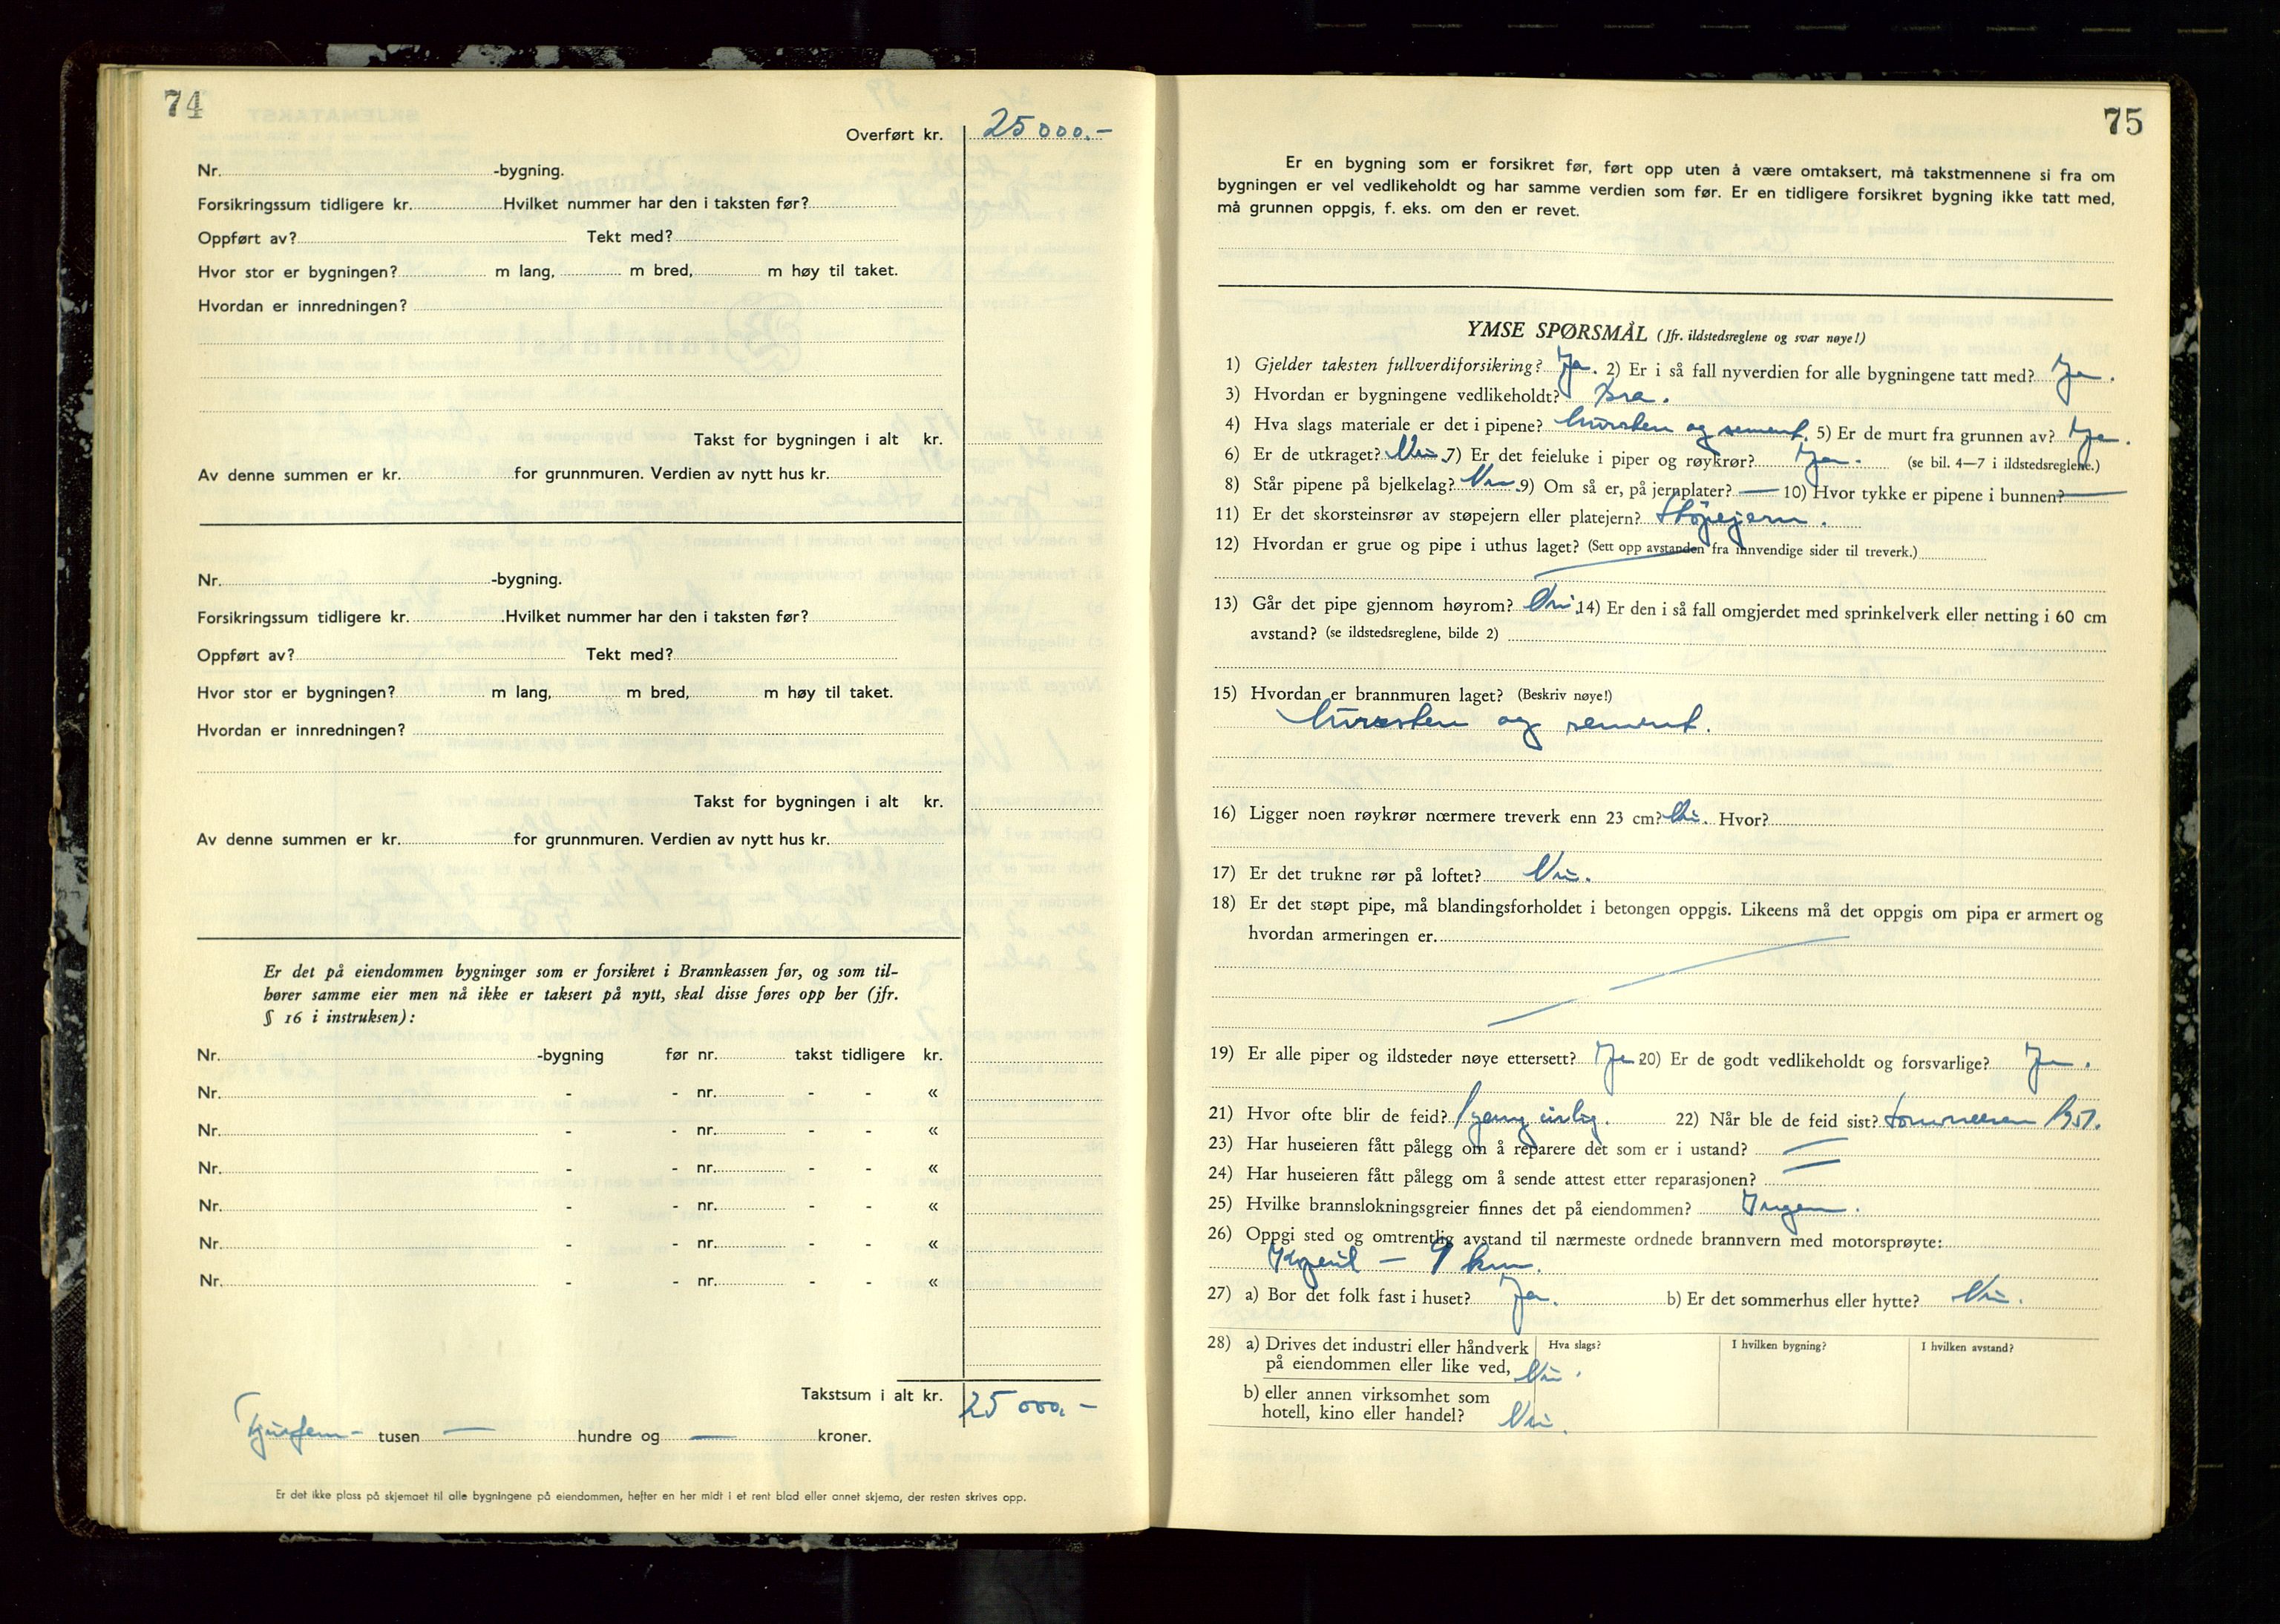 74
Overført kr. 25000.-
Nr. -bygning.
Forsikringssum tidligere kr. Hvilket nummer har den i taksten før?
Oppført av? Tekt med?
Hvor stor er bygningen? m lang, m bred, m høy til taket.
Hvordan er innredningen?
Takst for bygningen i alt kr.
Av denne summen er kr. for grunnmuren. Verdien av nytt hus kr.
Nr. -bygning.
Forsikringssum tidligere kr. Hvilket nummer har den i taksten før?
Oppført av? Tekt med?
Hvor stor er bygningen? m lang, m bred, m høy til taket.
Hvordan er innredningen?
Takst for bygningen i alt kr.
Av denne summen er kr. for grunnmuren. Verdien av nytt hus kr.
Er det på eiendommen bygninger som er forsikret i Brannkassen før, og som til-
hører samme eier men nå ikke er taksert på nytt, skal disse føres opp her (jfr.
§ 16 i instruksen):
Nr. -bygning før nr. takst tidligere kr.
Nr. - - nr. - - «
Nr. - - nr. - - «
Nr. - - nr. - - «
Nr. - - nr. - - «
Nr. - - nr. - - «
Nr. - - nr. - - «
Takstsum i alt kr. 25 000.-
Tjuefem - tusen — hundre og — kroner.
Er det ikke plass på skjemaet til alle bygningene på eiendommen, hefter en her midt i et rent blad eller annet skjema, der resten skrives opp.
75
Er en bygning som er forsikret før, ført opp uten å være omtaksert, må takstmennene si fra om
bygningen er vel vedlikeholdt og har samme verdien som før. Er en tidligere forsikret bygning ikke tatt med,
må grunnen oppgis, f. eks. om den er revet.
YMSE SPØRSMÅL (Jfr. ildstedsreglene og svar nøye!)
1) Gjelder taksten fullverdiforsikring? Ja. 2) Er i så fall nyverdien for alle bygningene tatt med? Ja.
3) Hvordan er bygningene vedlikeholdt? Bra.
4) Hva slags materiale er det i pipene? Mursten og sement. 5) Er de murt fra grunnen av? Ja.
6) Er de utkraget? Nei. 7) Er det feieluke i piper og røykrør? Ja. (se bil. 4—7 i ildstedsreglene.)
8) Står pipene på bjelkelag? Nei. 9) Om så er, på jernplater? — 10) Hvor tykke er pipene i bunnen? —
11) Er det skorsteinsrør av støpejern eller platejern? Støpejern.
12) Hvordan er grue og pipe i uthus laget? (Sett opp avstanden fra innvendige sider til treverk.)
13) Går det pipe gjennom høyrom? Nei. 14) Er den i så fall omgjerdet med sprinkelverk eller netting i 60 cm
avstand? (se ildstedsreglene, bilde 2)
15) Hvordan er brannmuren laget? (Beskriv nøye!)
Mursten og sement.
16) Ligger noen røykrør nærmere treverk enn 23 cm? Nei. Hvor?
17) Er det trukne rør på loftet? Nei.
18) Er det støpt pipe, må blandingsforholdet i betongen oppgis. Likeens må det oppgis om pipa er armert og
hvordan armeringen er.
19) Er alle piper og ildsteder nøye ettersett? Ja 20) Er de godt vedlikeholdt og forsvarlige? Ja.
21) Hvor ofte blir de feid? 1 gang årlig. 22) Når ble de feid sist? Sommeren 1951.
23) Har huseieren fått pålegg om å reparere det som er i ustand? —
24) Har huseieren fått pålegg om å sende attest etter reparasjonen? —
25) Hvilke brannslokningsgreier finnes det på eiendommen? Ingen.
26) Oppgi sted og omtrentlig avstand til nærmeste ordnede brannvern med motorsprøyte:
— 9 km.
27) a) Bor det folk fast i huset? Ja. b) Er det sommerhus eller hytte? Nei.
28) a) Drives det industri eller håndverk Hva slags? I hvilken bygning? I hvilken avstand?
på eiendommen eller like ved, Nei.
b) eller annen virksomhet som
hotell, kino eller handel? Nei.